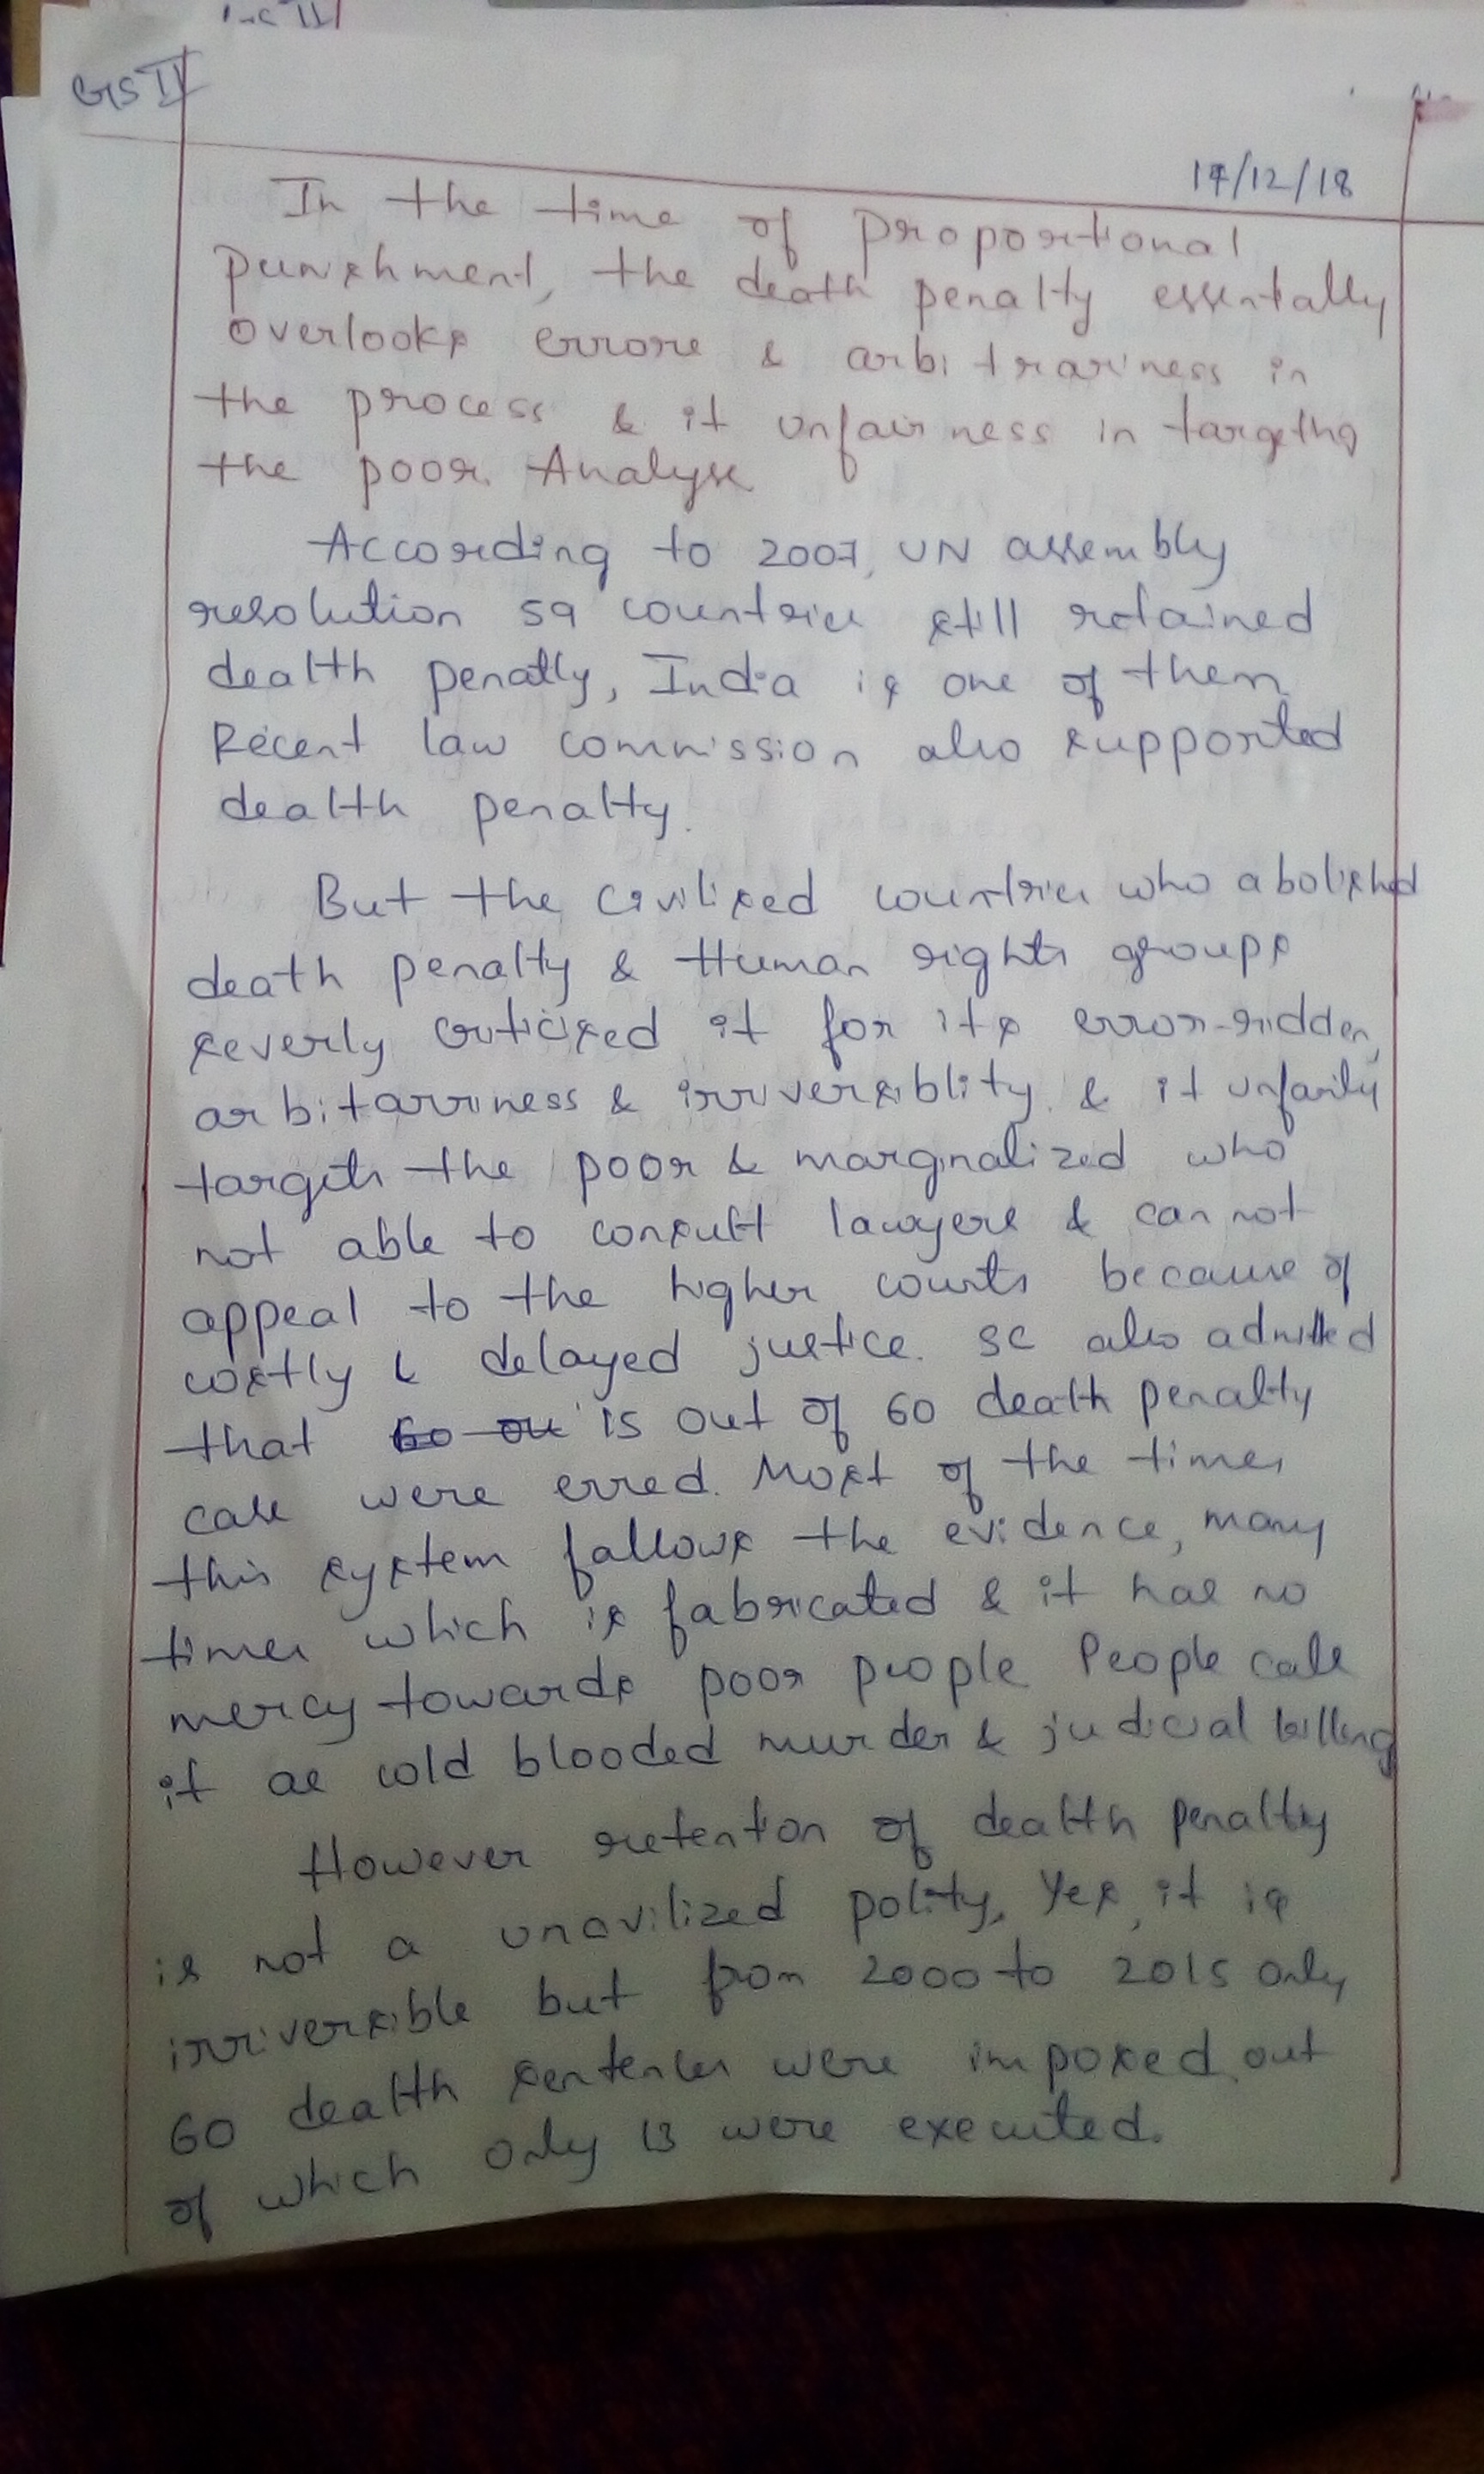 GS II
17/12/18
In the time of proportional
punishment, the death penalty essentally
overlooks errors & arbitrariness in
the process & it unfairness in targeting
the poor. Analyse
According to 2007, UN assembly
resolution 59 countries still retained
dealth penatly, India is one of them
Recent law commission also supported
dealth penalty.
But the civilised countries who abolished
death penalty & Human rights groups
severly criticised it for its error-ridden,
arbitarriness & irriversiblity. & it unfairly
targets the poor & marginalized who
not able to consult lawyers & can not
appeal to the higher courts because of
costly & delayed justice. SC also admitted
that 60 ou 15 out of 60 death penalty
case were erred. Most of the times
this system fallows the evidence, many
times which is fabricated & it has no
mercy towards poor people People call
it as cold blooded murder & judicial killing
However retention of dealth penalty
is not a uncivilized polity, Yes, it is
irriversible but from 2000 to 2015 only
60 dealth sentences were imposed out
of which only 13 were executed.